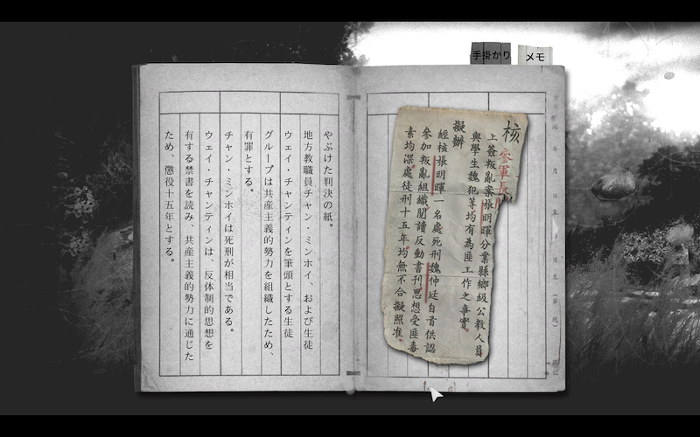 手掛かり
メモ
核
上簽叛亂案張明暉分業縣鄉級公教人員
與學生魏犯等均有為匪工作之事實
擬辦
經核張明暉一名處死刑魏仲廷自首供認
參加叛亂組織閱讀反動書刊思想受匪毒
素均深處徒刑十五年均無不合擬照准
やぶけた判決の紙。
地方教職員チャン・ミンホイ、および生徒
ウェイ・チャンティンを筆頭とする生徒
グループは共産主義的勢力を組織したため、
有罪とする。
チャン・ミンホイは死刑が相当である。
ウェイ・チャンティンは、反体制的思想を
有する禁書を読み、共産主義的勢力に通じた
ため、懲役十五年とする。